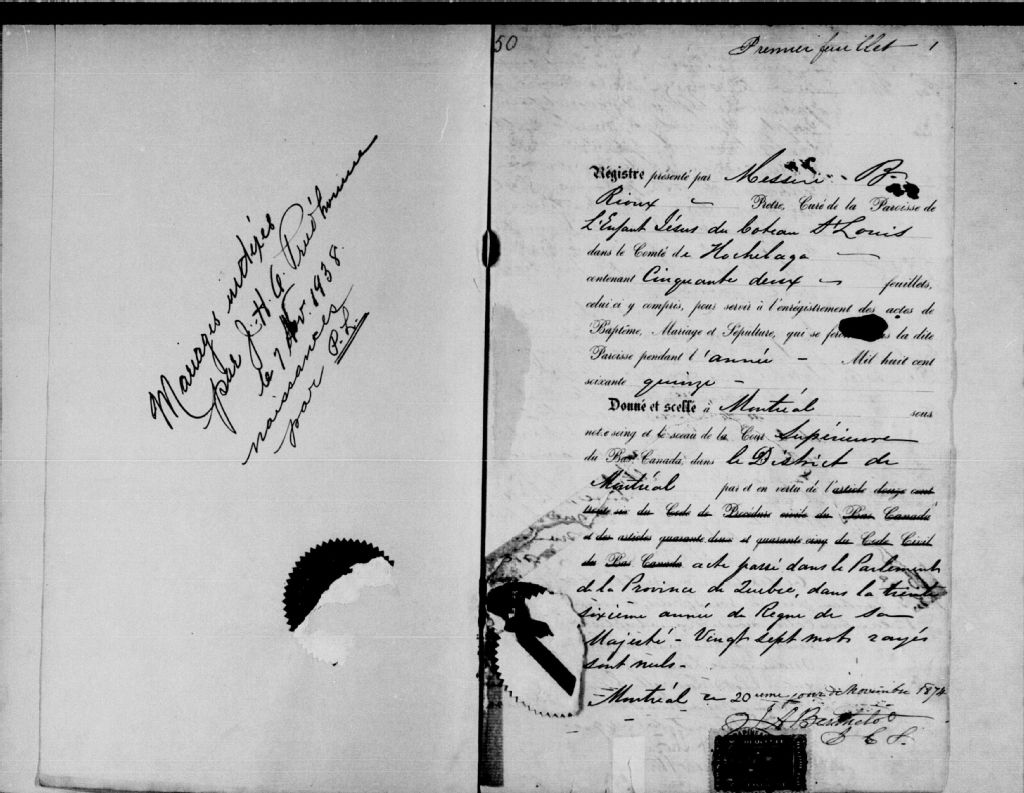 Mariages indexés
par J.-H. A. Prud'homme
le 7 Nov. 1938.
naissances
par P. L.
50
Premier feuillet 1
Régistre présenté par Messire B.
Rioux Prêtre, Curé de la Paroisse de
L'Enfant Jésus du Coteau St Louis
dans le Comté de Hochelaga
contenant Cinquante deux feuillets,
celui ci y compris, pour servir à l'enrégistrement des actes de
Baptême, Mariage et Sépulture, qui se la dite
Paroisse pendant l'année - Mil huit cent
soixante quinze -
Donné et scellé à Montréal sous
notre seing et le sceau de la Cour Supérieure
du Bas Canada, dans le District de
Montréal par et en vertu de l'article douze cent
trente six du Code de Procédure civile du Bas Canada
et des articles quarante deux et quarante cinq du Code Civil
du Bas Canada acte passé dans le Parlement
de la Province de Quebec, dans la trente
sixième année du Regne de sa
Majesté - Vingt sept mots rayés
sont nuls -
Montréal ce 20 ieme jour de Novembre 1874